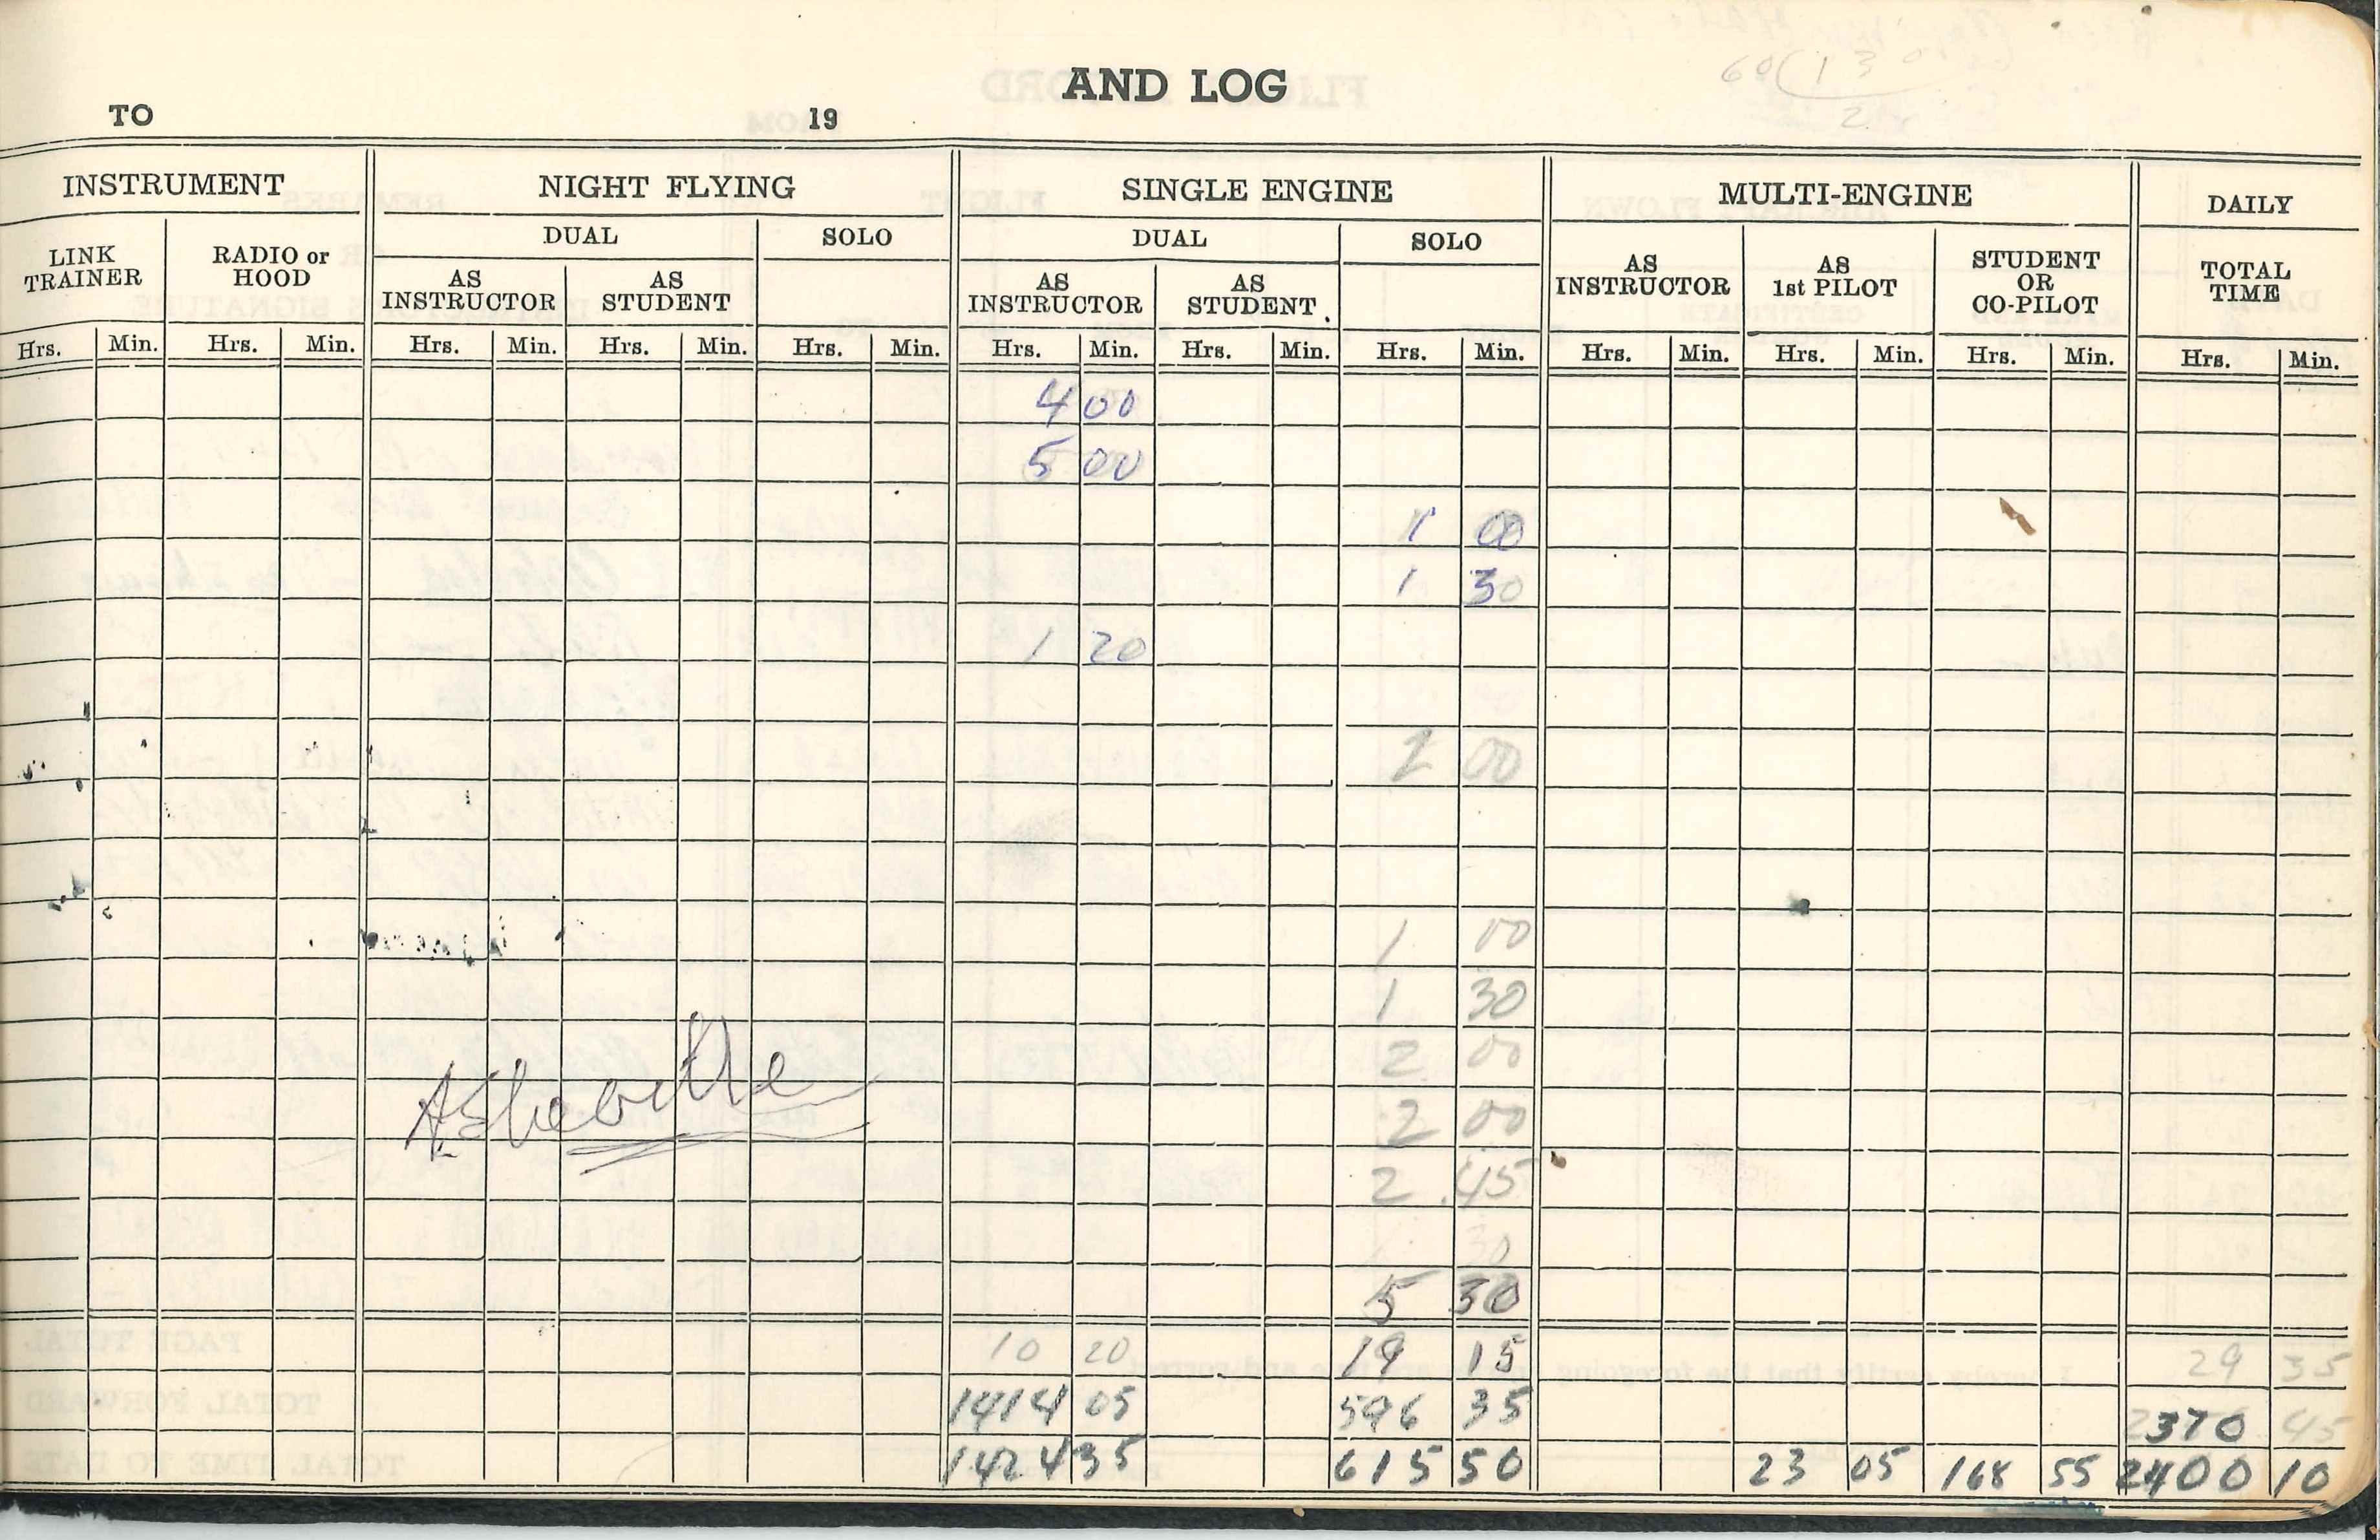 AND LOG
60(130
2
TO 19
INSTRUMENT NIGHT FLYING SINGLE ENGINE MULTI-ENGINE DAILY
LINK TRAINER RADIO or HOOD DUAL SOLO DUAL SOLO AS INSTRUCTOR AS 1st PILOT STUDENT OR CO-PILOT TOTAL TIME
AS INSTRUCTOR AS STUDENT AS INSTRUCTOR AS STUDENT
Hrs. Min. Hrs. Min. Hrs. Min. Hrs. Min. Hrs. Min. Hrs. Min. Hrs. Min. Hrs. Min. Hrs. Min. Hrs. Min. Hrs. Min. Hrs. Min.
4 00
5 00
1 00
1 30
1 20
2 00
1 00
1 30
2 00
Asheville
2 00
2 45
30
5 30
10 20 19 15 29 35
1414 05 596 35 2370 45
1424 35 615 50 23 05 168 55 2400 10